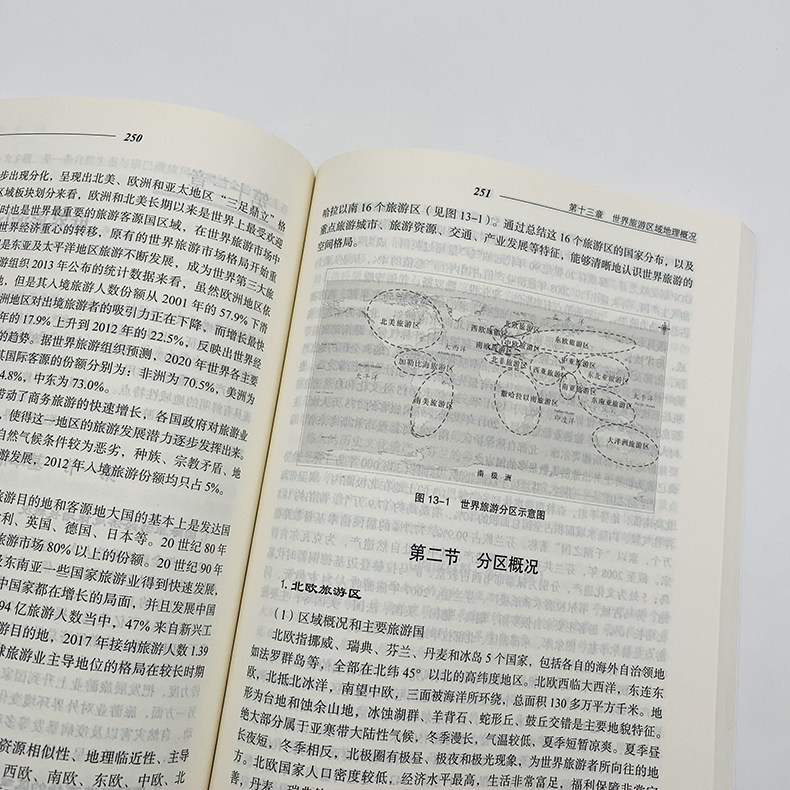 250
步出现分化，呈现出北美、欧洲和亚太地区“三足鼎立”格
区域板块划分来看，欧洲和北美长期以来是世界上最受欢迎
时也是世界最重要的旅游客源国区域，在世界旅游市场中
世界经济重心的转移，原有的世界旅游市场格局开始重
是东亚及太平洋地区旅游不断发展，成为世界第三大旅
游组织 2013 年公布的统计数据来看，虽然欧洲地区依
，但是其入境旅游人数份额从 2001 年的 57.9% 下滑
洲地区对出境旅游者的吸引力正在下降、而增长最快
年的 17.9% 上升到 2012 年的 22.5%，反映出世界经
的趋势。据世界旅游组织预测，2020 年世界各主要
其国际客源的份额分别为，非洲为 70.5%，美洲为
4.8%，中东为 73.0%。
带动了商务旅游的快速增长，各国政府对旅游业
，使得这一地区的旅游发展潜力逐步发挥出来。
自然气候条件较为恶劣，种族、宗教矛盾、地
游发展，2012 年入境旅游份额均只占 5%。
旅游目的地和客源地大国的基本上是发达国
利、英国、德国、日本等。20 世纪 80 年
旅游市场 80% 以上的份额。20 世纪 90 年
及东南亚一些国家旅游业得到快速发展，
中国家都在增长的局面，并且发展中国
94 亿旅游人数当中，47% 来自新兴工
游目的地，2017 年接纳旅游人数 1.39
球旅游业主导地位的格局在较长时期
资源相似性、地理临近性、主导
西欧、南欧、东欧、中欧、北
251
第十三章 世界旅游区域地理概况
哈拉以南 16 个旅游区（见图 13-1）。通过总结这 16 个旅游区的国家分布，以及
重点旅游城市、旅游资源、交通、产业发展等特征，能够清晰地认识世界旅游的
空间格局。
北美旅游区
北欧旅游区
西欧旅游区
东欧旅游区
中欧旅游区
南欧旅游区
大西洋
北非旅游区
中亚旅游区
加勒比海旅游区
西亚旅游区
东北亚旅游区
南亚旅游区
太平洋
南美旅游区
撒哈拉以南旅游区
东南亚旅游区
印度洋
大洋洲旅游区
南极洲
图 13-1 世界旅游分区示意图
第二节 分区概况
1. 北欧旅游区
（1）区域概况和主要旅游国
北欧指挪威、瑞典、芬兰、丹麦和冰岛 5 个国家，包括各自的海外自治领地
如法罗群岛等，全部在北纬 45° 以北的高纬度地区。北欧西临大西洋，东连东
欧，北抵北冰洋，南望中欧，三面被海洋所环绕，总面积 130 多万平方千米。地
形为台地和蚀余山地，冰蚀湖群、羊背石、蛇形丘、鼓丘交错是主要地貌特征。
绝大部分属于亚寒带大陆性气候，冬季漫长，气温较低，夏季短暂凉爽。夏季昼
长夜短，冬季相反，北极圈有极昼、极夜和极光现象，为世界旅游者所向往的地
方。北欧国家人口密度较低，经济水平最高，生活非常富足，福利保障非常完
善，丹麦、瑞典